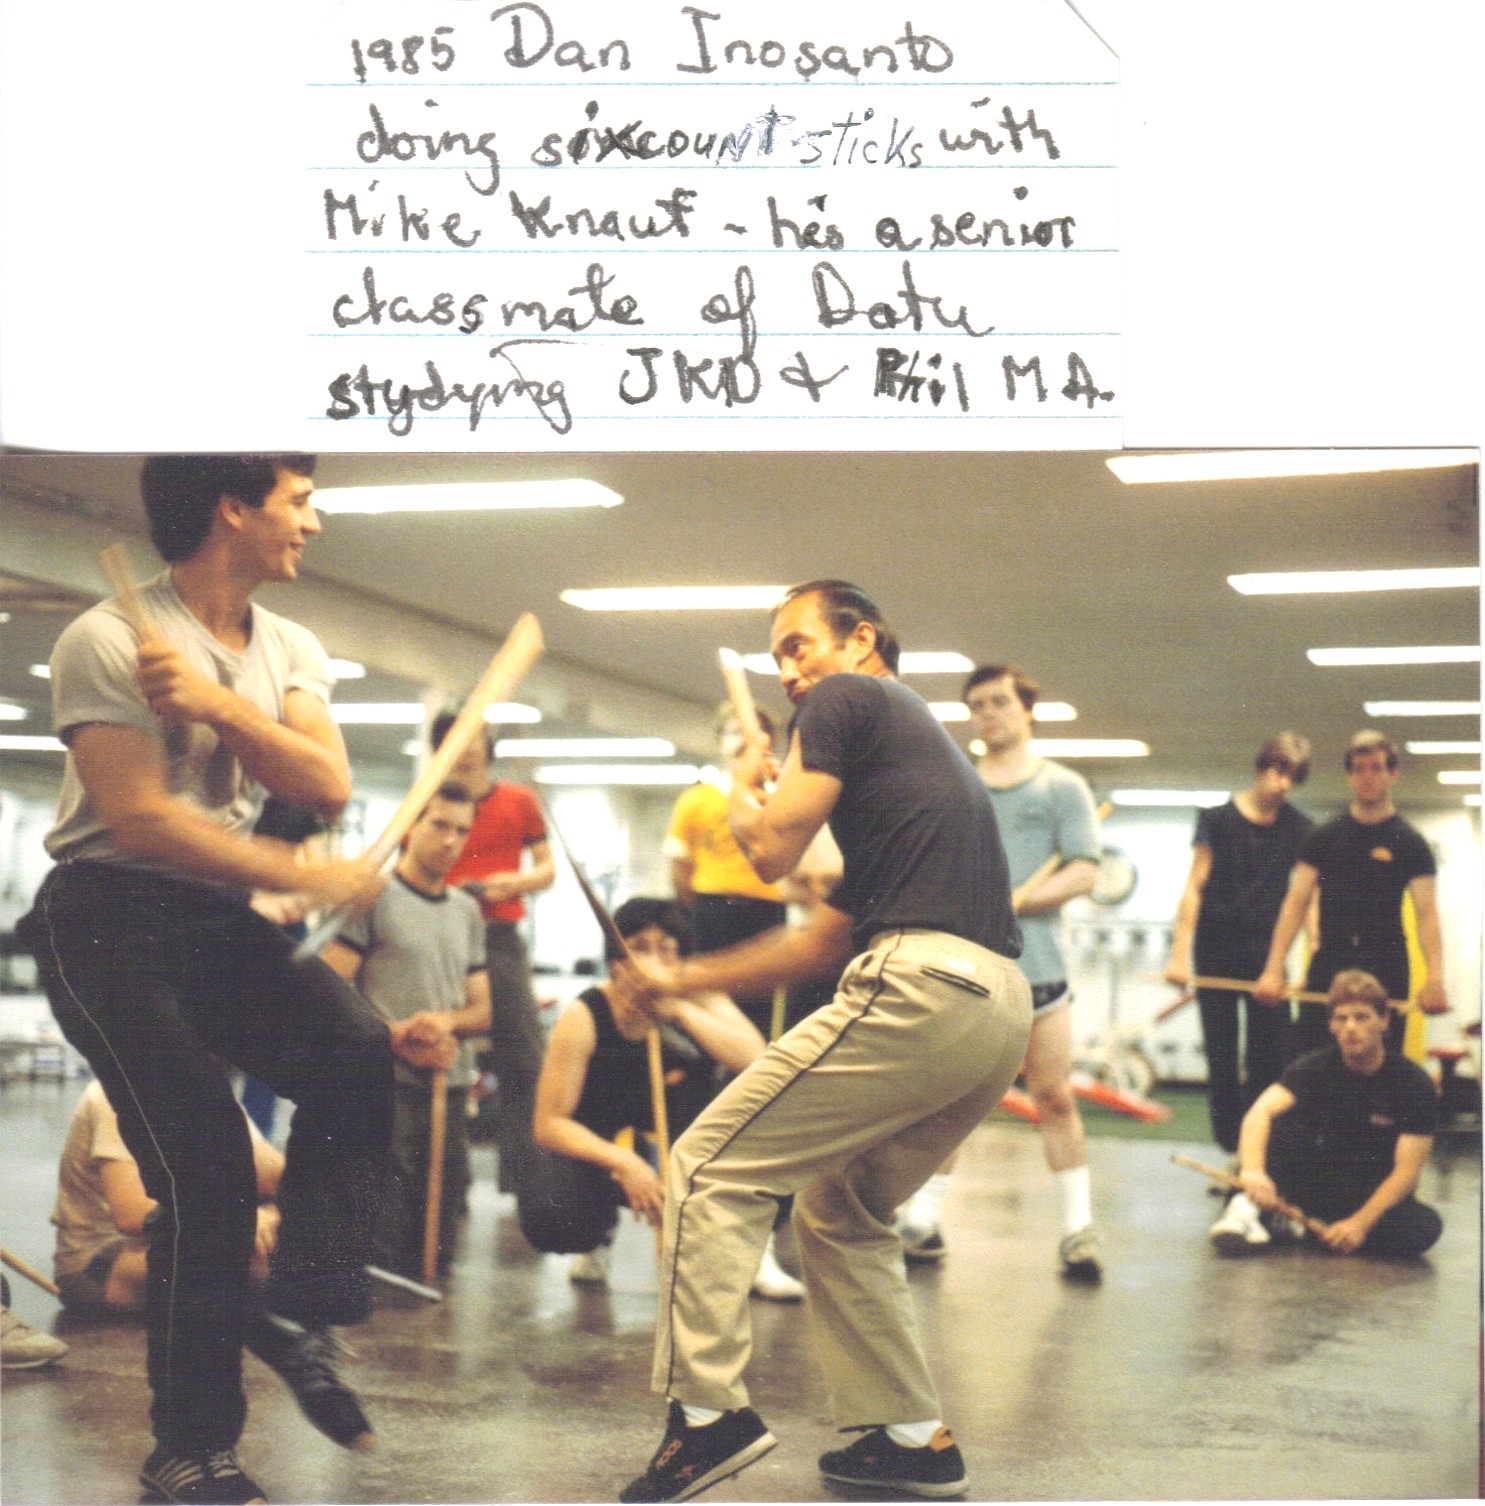 1985 Dan Inosanto
doing sixcount sticks with
Mike Knauf - he's a senior
classmate of Datu
studying JKD & Phil M A.